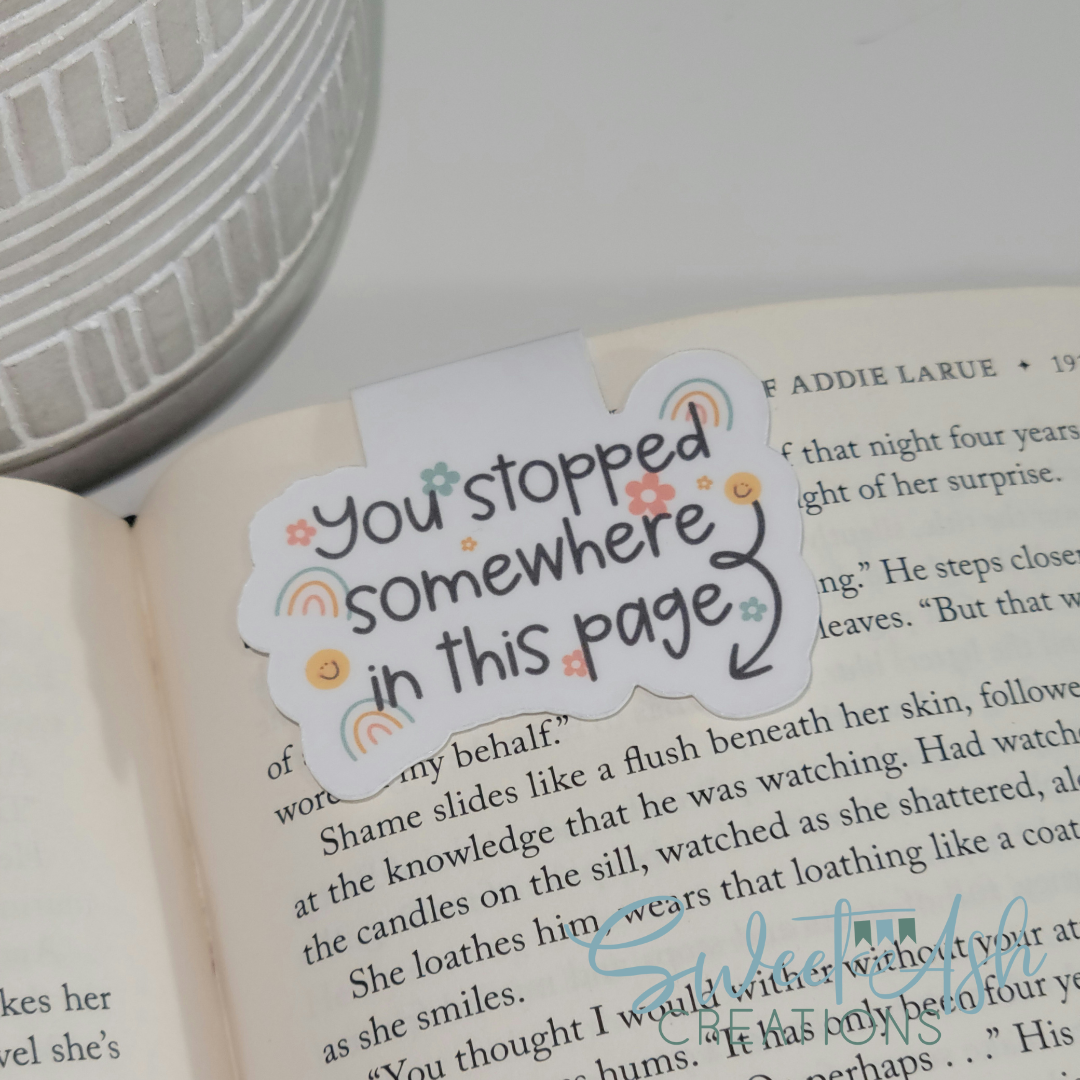 you stopped
somewhere
in this page
F ADDIE LARUE ✦ 19
f that night four years
ght of her surprise.
ng.” He steps closer
leaves. “But that w
of
my behalf.”
Shame slides like a flush beneath her skin, followe
at the knowledge that he was watching. Had watch
the candles on the sill, watched as she shattered, alo
She loathes him, wears that loathing like a coat
as she smiles.
“You thought I would wither without your at
hums. “It has only been four ye
perhaps . . .” His
kes her
vel she’s
Sweet Ash
CREATIONS